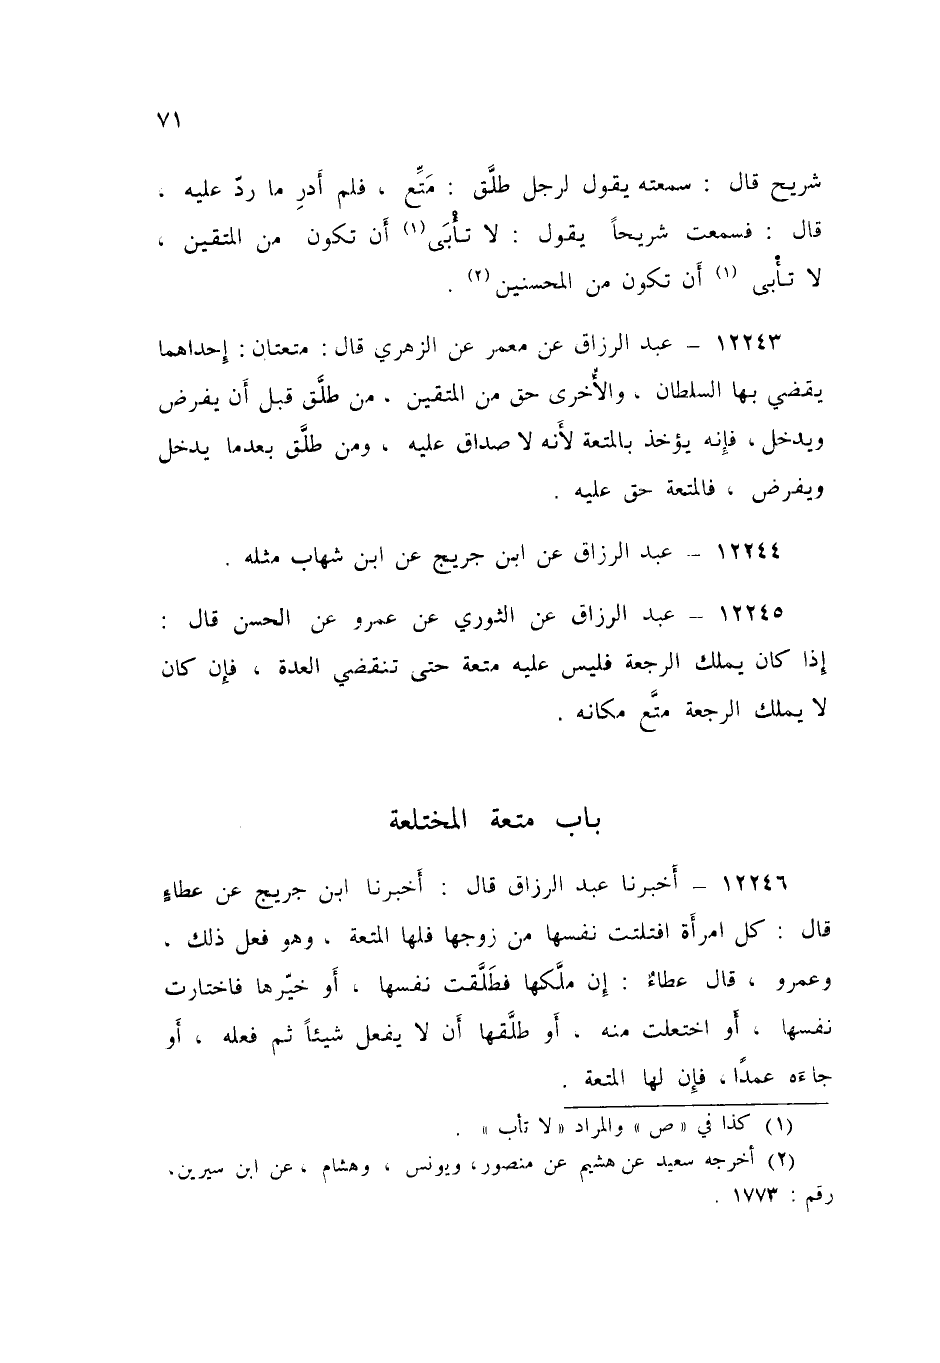 ٧١
شريح قال : سمعته يقول لرجل طلَّق : مَتِّع ، فلم أدرِ ما ردّ عليه ،
قال : فسمعت شريحاً يقول : لا تأْبَى(١) أن تكون من المتقين ،
لا تأْبى (١) أن تكون من المحسنين(٢) .
١٢٢٤٣ – عبد الرزاق عن معمر عن الزهري قال : متعتان : إحداهما
يقضي بها السلطان ، والأُخرى حق من المتقين ، من طلَّق قبل أن يفرض
ويدخل ، فإنه يؤخذ بالمتعة لأنه لا صداق عليه ، ومن طلَّق بعدما يدخل
ويفرض ، فالمتعة حق عليه .
١٢٢٤٤ – عبد الرزاق عن ابن جريج عن ابن شهاب مثله .
١٢٢٤٥ – عبد الرزاق عن الثوري عن عمرو عن الحسن قال :
إذا كان يملك الرجعة فليس عليه متعة حتى تنقضي العدة ، فإن كان
لا يملك الرجعة متَّع مكانه .
باب متعة المختلعة
١٢٢٤٦ – أخبرنا عبد الرزاق قال : أخبرنا ابن جريج عن عطاءٍ
قال : كل امرأة افتلتت نفسها من زوجها فلها المتعة ، وهو فعل ذلك ،
وعمرو ، قال عطاءٌ : إن ملَّكها فطَلَّقت نفسها ، أو خيّرها فاختارت
نفسها ، أو اختعلت منه ، أو طلَّقها أن لا يفعل شيئاً ثم فعله ، أو
جاءه عمدًا ، فإن لها المتعة .
(١) كذا في «ص» والمراد «لا تأب» .
(٢) أخرجه سعيد عن هشيم عن منصور، ويونس ، وهشام ، عن ابن سيرين،
رقم : ١٧٧٣ .